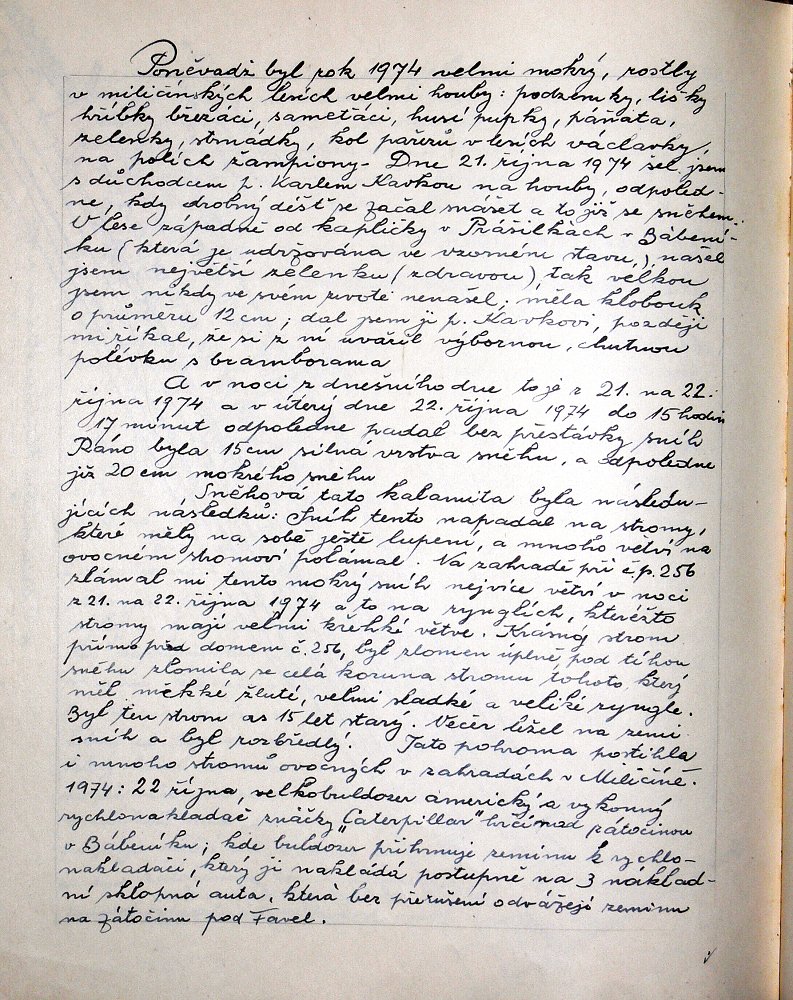 Poněvadž byl rok 1974 velmi mokrý, rostly
v miličínských lesích velmi houby: podzemky, lišky
hříbky březáci, sametáci, husí pupky, páňata,
zelenky, strnádky, kol pařezů v lesích václavky,
na polích žampiony - Dne 21. října 1974 šel jsem
s důchodcem p. Karlem Kavkou na houby, odpoled-
ne, kdy drobný déšť se začal snášet a to již se sněhem.
V lese západně od kapličky v Prášilkách v Bábení-
ku (která je udržována ve vzorném stavu,) našel
jsem největší zelenku (zdravou), tak velkou
jsem nikdy ve svém životě nenašel; měla klobouk
o průměru 12 cm; dal jsem ji p. Kavkovi, později
mi říkal, že si z ní uvařil výbornou, chutnou
polévku s bramborama
A v noci z dnešního dne to je z 21. na 22.
října 1974 a v úterý dne 22. října 1974 do 15 hodin
17 minut odpoledne padal bez přestávky sníh
Ráno byla 15 cm silná vrstva sněhu, a odpoledne
již 20 cm mokrého sněhu
Sněhová tato kalamita byla násleďu-
jících následků: Sníh tento napadal na stromy,
které měly na sobě ještě lupení, a mnoho větví na
ovocném stromoví polámal. Na zahradě při č.p. 256
zlámal mi tento mokrý sníh nejvíce větví v noci
z 21. na 22. října 1974 a to na rynglích, kteréžto
stromy mají velmi křehké větve. Krásný strom
přímo před domem č. 256, byl zlomen úplně, pod tíhou
sněhu zlomila se celá koruna stromu tohoto, který
měl měkké žluté, velmi sladké a veliké ryngle.
Byl ten strom as 15 let starý. Večer ležel na zemi
sníh a byl rozbředlý. Tato pohroma postihla
i mnoho stromů ovocných v zahradách v Miličíně.
1974: 22 října, velkobuldozer americký a výkonný
rychlonakladač značky "Caterpillar" hrčí nad zátočinou
v Bábeníku; kde buldozer přihrnuje zeminu k rychlo-
nakladači, který ji nakládá postupně na 3 náklad-
ní sklopná auta, která bez přerušení odvážejí zeminu
na zátočinu pod Favel.